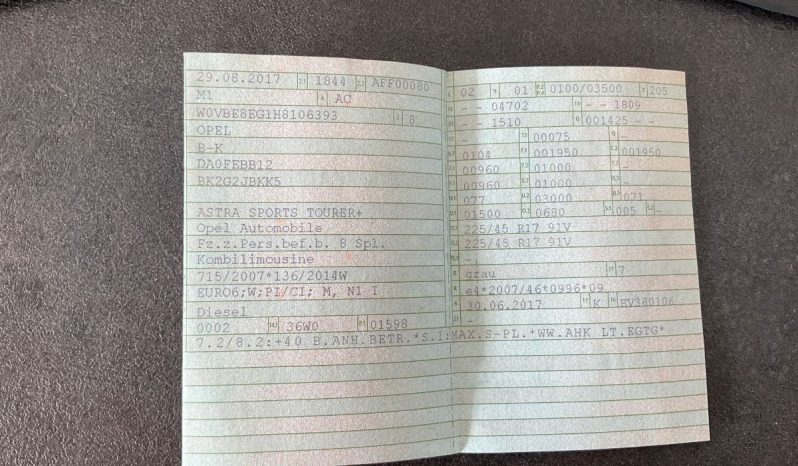 29.08.2017 2.1 1844 2.2 AFF00080
M1 4 AC
W0VBE8EG1H8106393 3 8
OPEL
B-K
DA0FEBB12
BK2G2JBKK5
ASTRA SPORTS TOURER+
Opel Automobile
Fz.z.Pers.bef.b. 8 Spl.
Kombilimousine
715/2007*136/2014W
EURO6;W;PI/CI; M, N1 I
Diesel
0002 36W0 01598
7.2/8.2:+40 B.ANH.BETR.*S.1:MAX.S-PL.*WW.AHK LT.EGTG*
L 02 9 01 P.2 P.4 0100/03500 T 205
18 - - 04702 19 - - 1809
20 - - 1510 G 001425 - -
12 - 13 00075 Q -
V.7 0104 F.1 001950 F.2 001950
7.1 00960 7.2 01000 7.3 -
8.1 00960 8.2 01000 8.3 -
U.1 077 U.2 03000 U.3 071
O.1 01500 O.2 0680 S.1 005 S.2 -
15.1 225/45 R17 91V
15.2 225/45 R17 91V
15.3 -
R grau 11 7
K e4*2007/46*0996*09
6 30.06.2017 17 K 16 EV360106
21 -